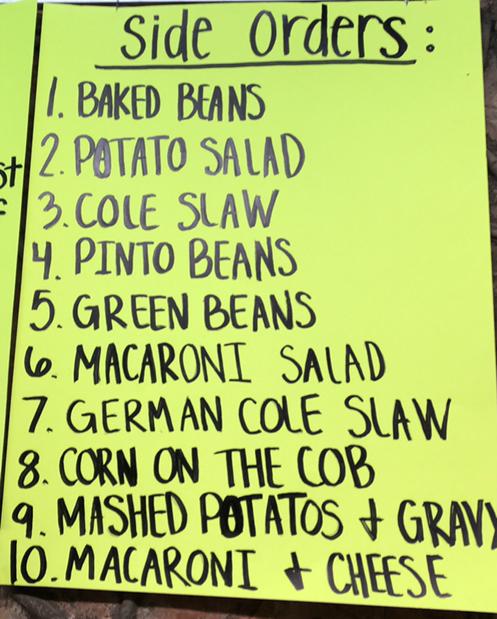 Side Orders:
1. BAKED BEANS
2. POTATO SALAD
st
3. COLE SLAW
4. PINTO BEANS
5. GREEN BEANS
6. MACARONI SALAD
7. GERMAN COLE SLAW
8. CORN ON THE COB
9. MASHED POTATOS & GRAVY
10. MACARONI & CHEESE